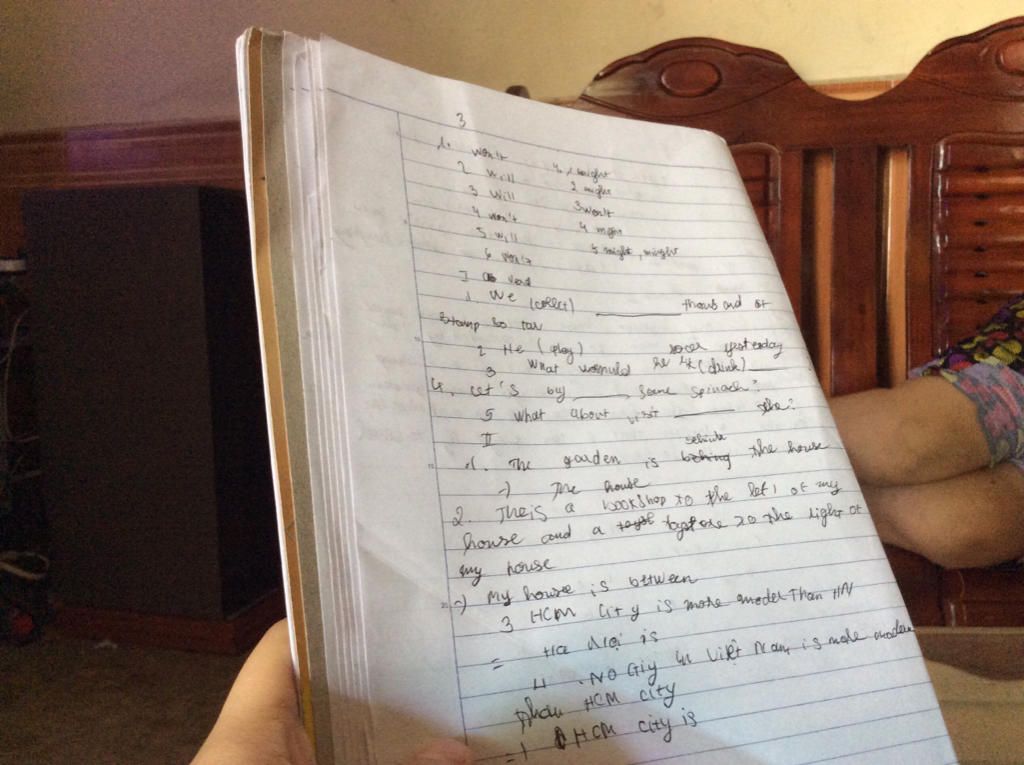 3
1. won't 4. 1 might
2 will 2 might
3 will 3 won't
4 won't 4
5 will 5 might, might
6 won't
I
1 We (collect) ______ thousand of
stamp so far
2 He (play) yesterday
3 What would he (drink) ____
4. Let's buy _____ some spinach?
5 What about visit _____ ?
II
behind
1. The garden is behing the house
-) The house
2. Theis a bookshop to the left of my
house and a to the right of
my house
-) My house is between
3 HCM city is more model Than HN
= Ha Nội is
4. NO City in Việt Nam is more modern
than HCM city
=) HCM city is